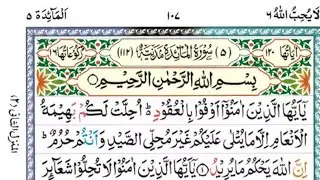 لَا يُحِبُّ اللهُ ٦ ١٠٧ اَلْمَآئِدَة ٥
اٰيَاتُهَا ١٢٠ (٥) سُوْرَةُ الْمَآئِدَةِ مَدَنِيَّةٌ (١١٢) رُكُوْعَاتُهَا ١٦
بِسْمِ اللهِ الرَّحْمٰنِ الرَّحِيْمِ
يٰٓاَيُّهَا الَّذِيْنَ اٰمَنُوْٓا اَوْفُوْا بِالْعُقُوْدِ ؕ اُحِلَّتْ لَكُمْ بَهِيْمَةُ
الْاَنْعَامِ اِلَّا مَا يُتْلٰى عَلَيْكُمْ غَيْرَ مُحِلِّى الصَّيْدِ وَاَنْتُمْ حُرُمٌ ؕ
اِنَّ اللهَ يَحْكُمُ مَا يُرِيْدُ ۝١ يٰٓاَيُّهَا الَّذِيْنَ اٰمَنُوْا لَا تُحِلُّوْا شَعَآئِرَ